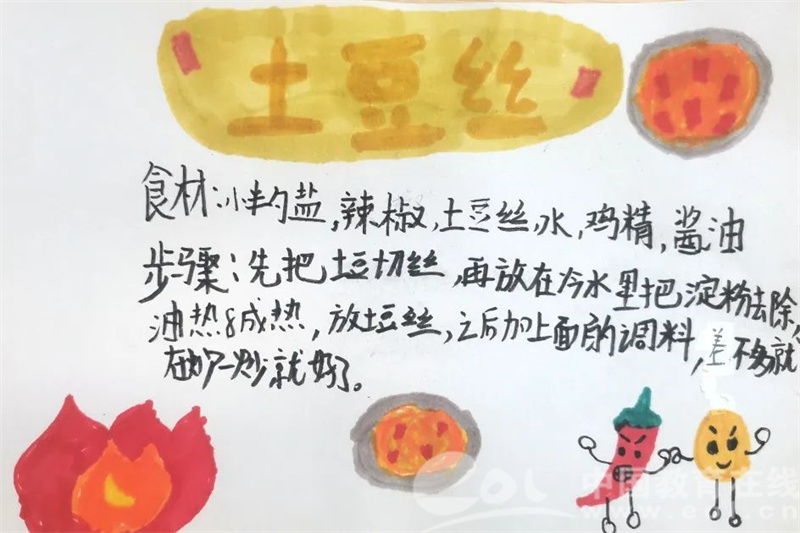 土豆丝
食材:小半勺盐,辣椒,土豆丝,水,鸡精,酱油
步骤:先把土豆切丝,再放在冷水里把淀粉去除,
油热8成热,放土豆丝,之后加上面的调料,差不多就
在炒一炒就好了。
eol 中国教育在线
www.eol.cn